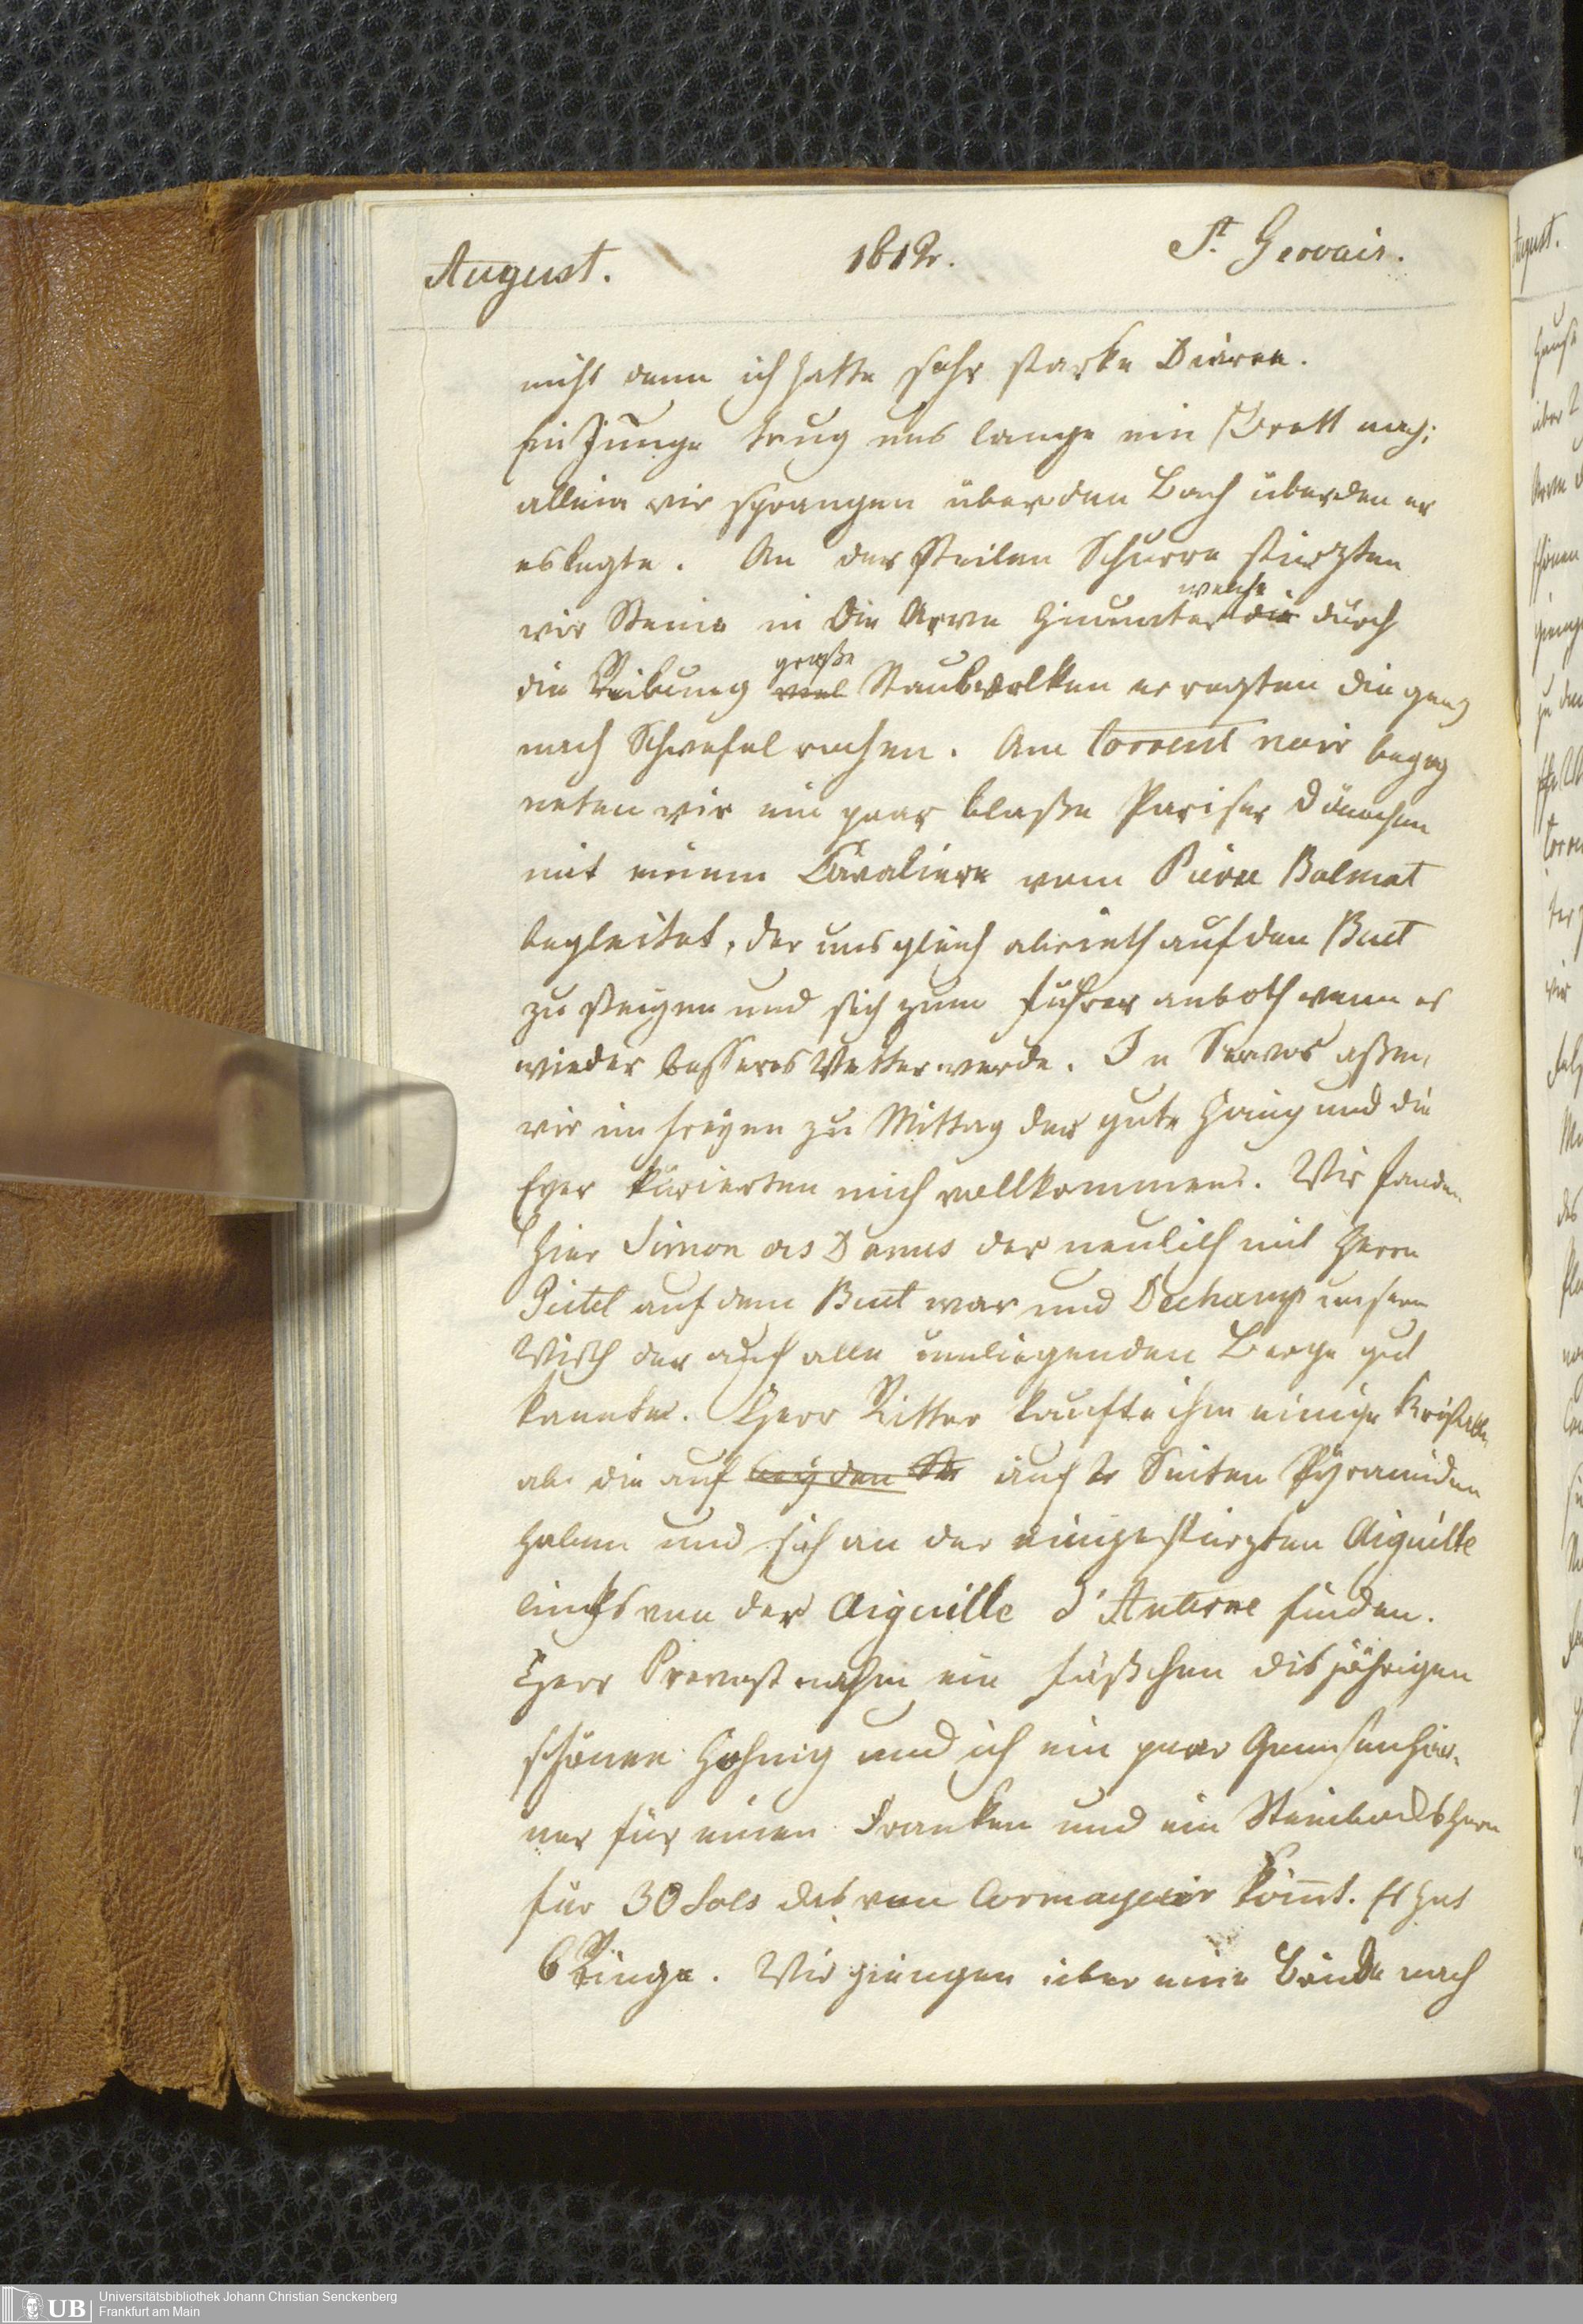 August. 1812. St. Gervais.
nicht denn ich hatte sehr starke Diaree.
Ein Junge trug uns lange ein Brett nach;
allein wir sprangen über den Bach über den er
es legte. An der steilen Schurre stürzten
welche
wir Steine in die Arve hinunter die durch
große
die Reibung viel Staubwolken erregten die ganz
nach Schwefel rochen. Am torrent noir begeg
neten wir ein paar blaße Pariser Dämchen
mit einem Cavaliere vom Pierre Balmat
begleitet, der uns gleich abrieth auf den Buet
zu steigen und sich zum Führer anboth wenn es
wieder besseres Wetter werde. In Servos aßen
wir im freyen zu Mittag der gute Honig und die
Eyer kurierten mich vollkommen. Wir fanden
hier Simon der neulich mit Herrn
Pictet auf dem Buet war und Dechamp unsern
Wirth der auch alle umliegenden Berge gut
kannte. Herr Ritter kaufte ihm einige Kristalle
ab die auf beyden Se auf 2 Seiten Pyramiden
haben und sich an der eingestürzten Aiguille
lincks von der Aiguille d'Anterne finden.
Herr Prevost nahm ein Fäßchen disjährigen
schönen Hohnig und ich ein paar Gemsenhör-
ner für einen Franken und ein Steinbockshorn
für 30 Sols das von Cormayeur kömt. Es hat
6 Ringe. Wir giengen über eine Brücke nach
August.
Universitätsbibliothek Johann Christian Senckenberg
Frankfurt am Main
UB